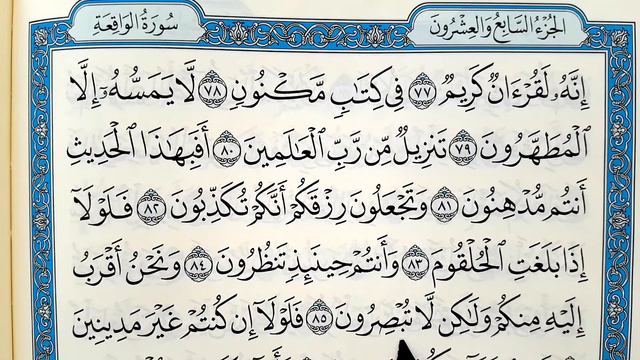 الجزء السابع والعشرون
سورة الواقعة
إِنَّهُۥ لَقُرْءَانٌ كَرِيمٌ ٧٧ فِى كِتَٰبٍ مَّكْنُونٍ ٧٨ لَّا يَمَسُّهُۥٓ إِلَّا
ٱلْمُطَهَّرُونَ ٧٩ تَنزِيلٌ مِّن رَّبِّ ٱلْعَٰلَمِينَ ٨٠ أَفَبِهَٰذَا ٱلْحَدِيثِ
أَنتُم مُّدْهِنُونَ ٨١ وَتَجْعَلُونَ رِزْقَكُمْ أَنَّكُمْ تُكَذِّبُونَ ٨٢ فَلَوْلَآ
إِذَا بَلَغَتِ ٱلْحُلْقُومَ ٨٣ وَأَنتُمْ حِينَئِذٍ تَنظُرُونَ ٨٤ وَنَحْنُ أَقْرَبُ
إِلَيْهِ مِنكُمْ وَلَٰكِن لَّا تُبْصِرُونَ ٨٥ فَلَوْلَآ إِن كُنتُمْ غَيْرَ مَدِينِينَ